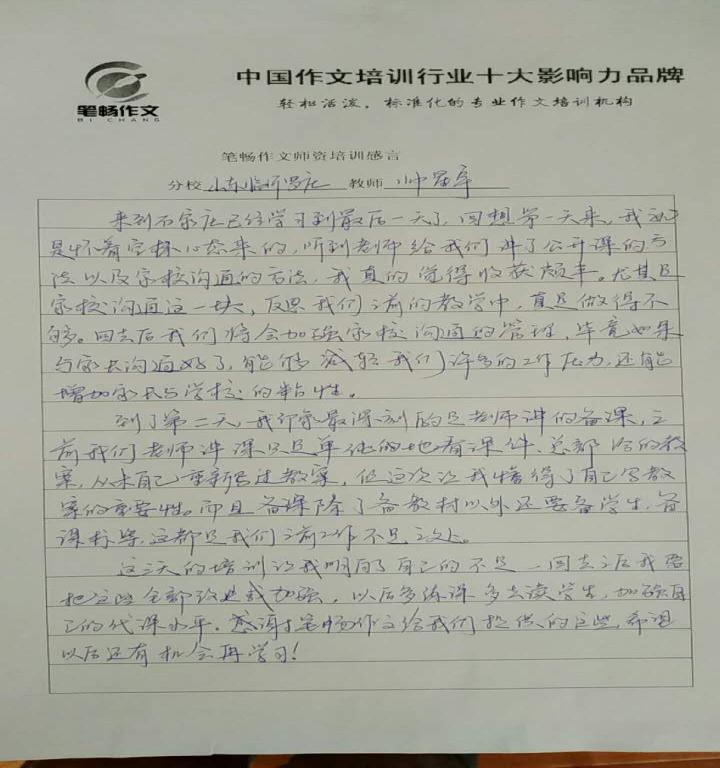 笔畅作文
BI CHANG
中国作文培训行业十大影响力品牌
轻松活泼，标准化的专业作文培训机构
笔畅作文师资培训感言
分校 山东临沂罗庄 教师
来到石家庄已经学习到最后一天了，回想第一天来，我
是怀着空杯心态来的，听到老师给我们讲了公开课的方
法以及家校沟通的方法，我真的觉得收获颇丰。尤其是
家校沟通这一块，反思我们之前的教学中，真是做得不
够。回去后我们将会加强家校沟通的管理，毕竟如果
与家长沟通好了，能够减轻我们许多的工作压力，还有能
增加家长与学校的粘性。
到了第二天，我印象最深刻的是老师讲的备课，之
前我们老师讲课只是单纯的地看课件、总部给的教
案，从未自己重新写过教案，但这次让我懂得了自己写教
案的重要性。而且备课除了备教材以外还要备学生，备
课标等，这都是我们之前工作不足之处。
这三天的培训让我明白了自己的不足，回去之后我要
把这些全部改进或加强，以后多练课多去读学生，加强自
己的代课水平。感谢笔畅作文给我们提供的这些，希望
以后还有机会再学习！